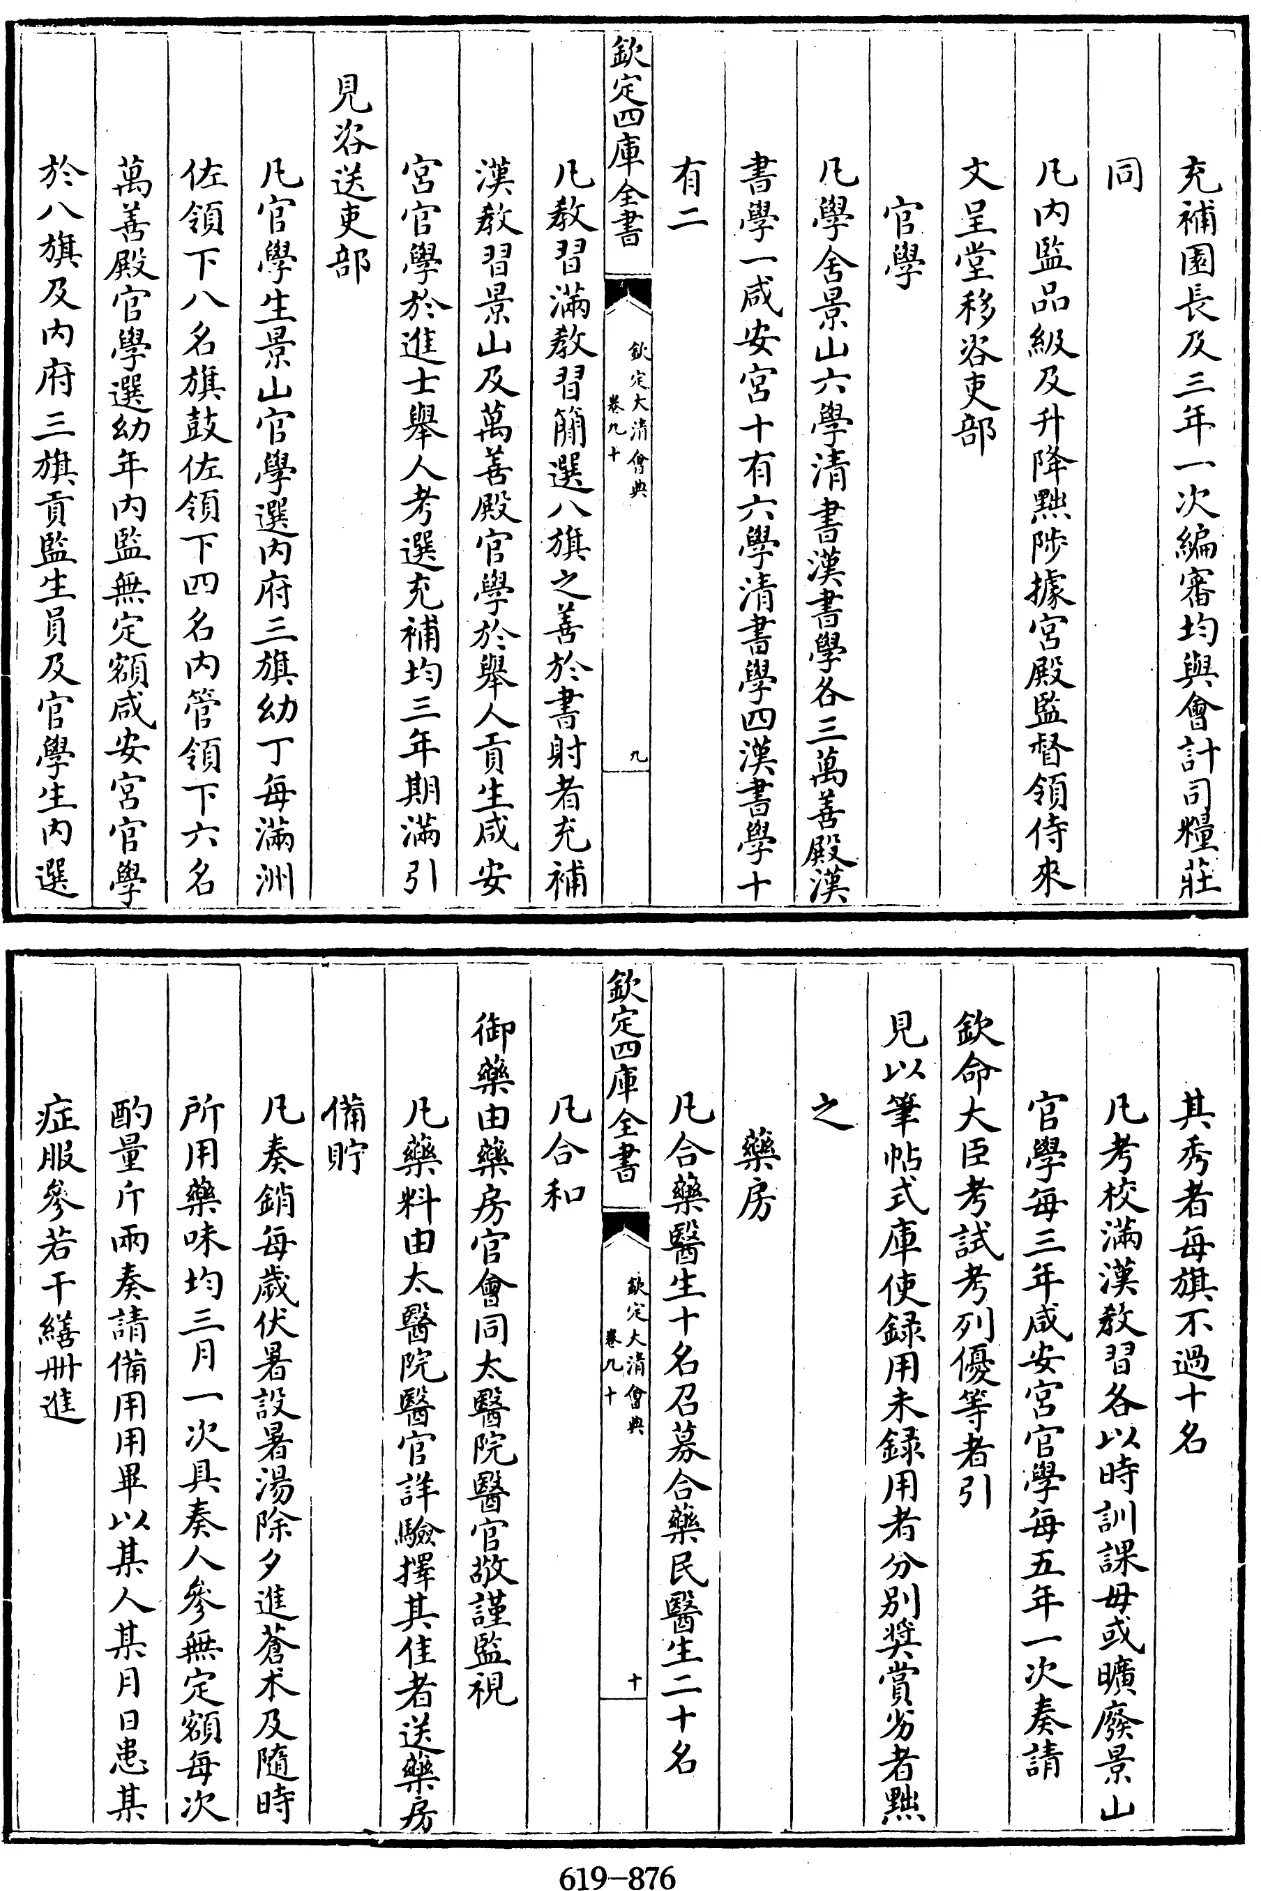 充補園長及三年一次編審均與會計司糧莊
同
凡内監品級及升降黜陟據宮殿監督領侍來
文呈堂移咨吏部
官學
凡學舍景山六學清書漢書學各三萬善殿漢
書學一咸安宮十有六學清書學四漢書學十
有二
欽定四庫全書
欽定大清會典
卷九十
九
凡教習滿教習簡選八旗之善於書射者充補
漢教習景山及萬善殿官學於舉人貢生咸安
宮官學於進士舉人考選充補均三年期滿引
見咨送吏部
凡官學生景山官學選内府三旗幼丁每滿洲
佐領下八名旗鼓佐領下四名内管領下六名
萬善殿官學選幼年内監無定額咸安宮官學
於八旗及内府三旗貢監生員及官學生内選
其秀者每旗不過十名
凡考校滿漢教習各以時訓課毋或曠廢景山
官學每三年咸安宮官學每五年一次奏請
欽命大臣考試考列優等者引
見以筆帖式庫使録用未録用者分别奬賞劣者黜
之
藥房
凡合藥醫生十名召募合藥民醫生二十名
欽定四庫全書
欽定大清會典
卷九十
十
凡合和
御藥由藥房官會同太醫院醫官敬謹監視
凡藥料由太醫院醫官詳驗擇其佳者送藥房
備貯
凡奏銷每歲伏暑設暑湯除夕進蒼术及隨時
所用藥味均三月一次具奏人參無定額每次
酌量斤兩奏請備用用畢以某人某月日患某
症服參若干繕冊進
619-876